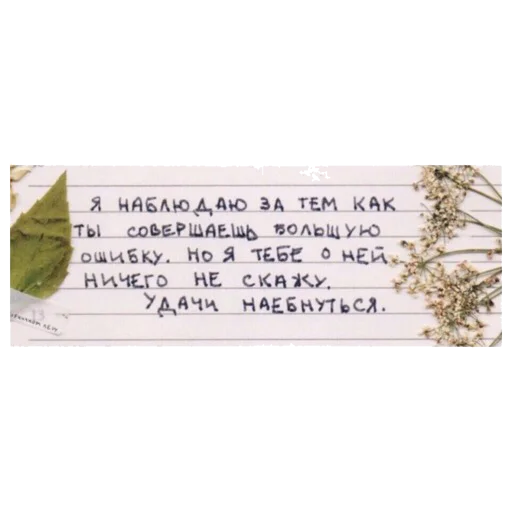 Я НАБЛЮДАЮ ЗА ТЕМ КАК
ТЫ СОВЕРШАЕШЬ БОЛЬШУЮ
ОШИБКУ. НО Я ТЕБЕ О НЕЙ
НИЧЕГО НЕ СКАЖУ.
УДАЧИ НАЕБНУТЬСЯ.